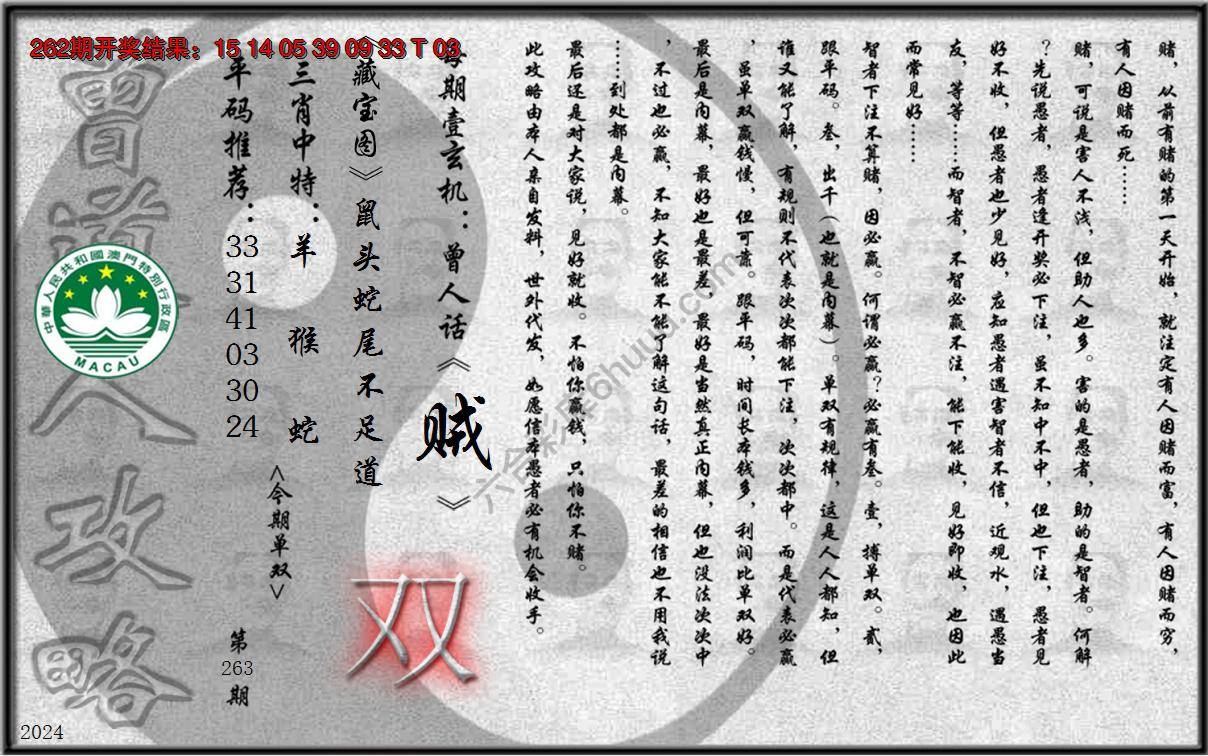 262期开奖结果：15 14 05 39 09 33 T 03
赌，从前有赌的第一天开始，就注定有人因赌而富，有人因赌而穷，
有人因赌而死……
赌，可说是害人不浅，但助人也多。害的是愚者，助的是智者。何解
？先说愚者，愚者逢开奖必下注，虽不知中不中，但也下注，愚者见
好不收，但愚者也少见好，应知愚者遇害智者不信，近观水，遇愚当
友，等等……而智者，不智必赢不注，能下能收，见好即收，也因此
而常见好……
智者下注不算赌，因必赢。何谓必赢？必赢有叁。壹，搏单双。贰，
跟平码。叁，出千（也就是内幕）。单双有规律，这是人人都知，但
谁又能了解，有规则不代表次次都能下注，次次都中。而是代表必赢
，虽单双赢钱慢，但可靠。跟平码，时间长本钱多，利润比单双好。
最后是内幕，最好也是最差，最好是当然真正内幕，但也没法次次中
，不过也必赢，不知大家能不能了解这句话，最差的相信也不用我说
……到处都是内幕。
最后还是对大家说，见好就收。不怕你赢钱，只怕你不赌。
此攻略由本人亲自发料，世外代发，如愿信本愚者必有机会收手。
每期壹玄机：曾人话《贼》
《藏宝图》鼠头蛇尾不足道
双
三肖中特：羊 猴 蛇
<今期单双>
平码推荐：33 31 41 03 30 24
第263期
曾道人攻略
中華人民共和國澳門特別行政區
MACAU
六合彩库6huuu.com
2024